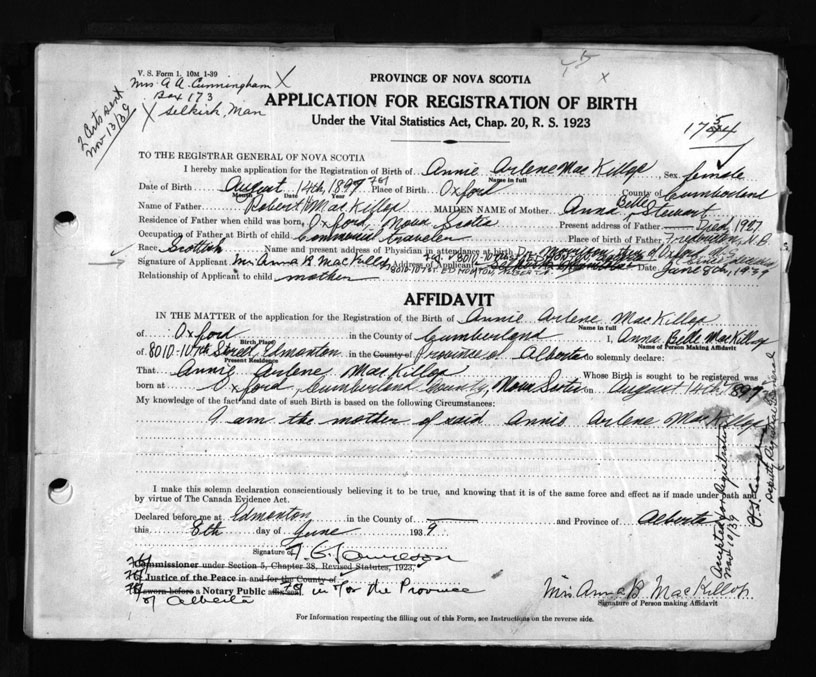 V. S. Form 1. 10M 1-39
Mrs. A A. Cunningham X
Box 173
X Selkirk, Man
2 Certs sent
Nov 13/39
PROVINCE OF NOVA SCOTIA
X
APPLICATION FOR REGISTRATION OF BIRTH
Under the Vital Statistics Act, Chap. 20, R. S. 1923
TO THE REGISTRAR GENERAL OF NOVA SCOTIA
I hereby make application for the Registration of Birth of Annie Arlene MacKillop Sex female
Name in full
Date of Birth August 14th, 1897 Place of Birth Oxford County of Cumberland
Month Year
Name of Father Robert MacKillop MAIDEN NAME of Mother Anna Belle Stewart
Residence of Father when child was born, Oxford, Nova Scotia Present address of Father Died 1927
Occupation of Father at Birth of child Commercial traveler Place of birth of Father Fredericton, N.B.
Race Scottish Name and present address of Physician in attendance at birth Dr.
Signature of Applicant Mrs Anna B. MacKillop Address of Applicant Date June 8th, 1939
8010-107 St. EDMONTON, ALBERTA
Relationship of Applicant to child mother
AFFIDAVIT
IN THE MATTER of the application for the Registration of the Birth of Annie Arlene MacKillop
Name in full
of Oxford in the County of Cumberland I, Anna Belle MacKillop
Birth Place Name of Person Making Affidavit
of 8010-107th Street, Edmonton in the County of Province of Alberta do solemnly declare:
Present Residence
That Annie Arlene MacKillop Whose Birth is sought to be registered was
born at Oxford, Cumberland County, Nova Scotia on August 14th 1897
My knowledge of the fact and date of such Birth is based on the following Circumstances:
I am the mother of said Annie Arlene MacKillop
I make this solemn declaration conscientiously believing it to be true, and knowing that it is of the same force and effect as if made under oath and
by virtue of The Canada Evidence Act.
Declared before me at Edmonton in the County of and Province of Alberta
this 8th day of June 1939
Signature of
Commissioner under Section 5, Chapter 38, Revised Statutes, 1923,
Justice of the Peace in and for the County of
a Notary Public in & for the Province
of Alberta
Mrs Anna B. MacKillop
Signature of Person making Affidavit
For Information respecting the filling out of this Form, see Instructions on the reverse.
Accepted for Registration
Nov 10/39
Deputy Registrar General